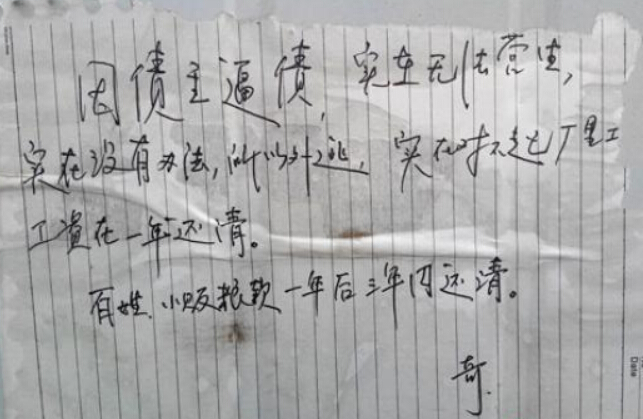 因债主逼债,实在无法营生,
实在没有办法,所以外逃,实在对不起厂里工
工资在一年还清。
百姓.小贩粮款一年后三年内还清。
奇.
Date